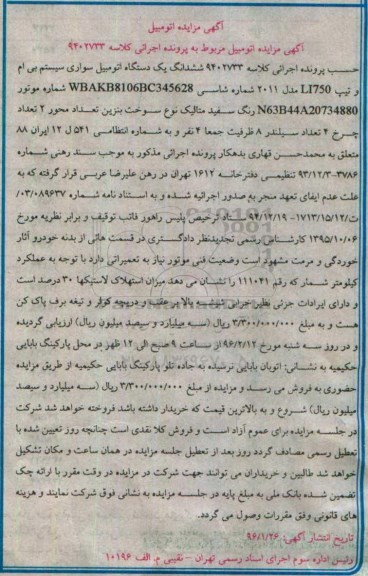 آگهی مزایده اتومبیل
آگهی مزایده اتومبیل مربوط به پرونده اجرائی کلاسه ۹۴۰۲۷۳۳
حسب پرونده اجرائی کلاسه ۹۴۰۲۷۳۳ ششدانگ یک دستگاه اتومبیل سواری سیستم بی ام
و تیپ LI750 مدل ۲۰۱۱ شماره شاسی WBAKB8106BC345628 شماره موتور
N63B44A20734880 رنگ سفید متالیک نوع سوخت بنزین تعداد محور ۲ تعداد
چرخ ۴ تعداد سیلندر ۸ ظرفیت جمعا ۴ نفر و به شماره انتظامی ۵۴۱ ل ۱۲ ایران ۸۸
متعلق به محمدحسن قهاری بدهکار پرونده اجرائی مذکور به موجب سند رهنی شماره
۳۷۸۶-۹۳/۱۲/۳ تنظیمی دفترخانه ۱۶۱۲ تهران در رهن علیرضا عربی قرار گرفته که به
علت عدم ایفای تعهد منجر به صدور اجرائیه شده و به استناد نامه شماره ۰۳/۰۸۹۶۳۷/
ت/۱۷۱۳/۱۵/۱۲- ۹۴/۱۲/۱۹ ستاد ترخیص پلیس راهور فاتب توقیف و برابر نظریه مورخ
۱۳۹۵/۱۰/۰۶ کارشناس رسمی تجدیدنظر دادگستری در قسمت هائی از بدنه خودرو آثار
خوردگی و مرمت مشهود است وضعیت فنی موتور نیاز به تعمیراتی دارد با توجه به عملکرد
کیلومتر شمار که رقم ۱۱۱۰۴۱ را نشان می دهد میزان استهلاک لاستیکها ۳۰ درصد است
و دارای ایرادات جزئی نظیر خرابی شیشه بالابر عقب و دریچه کولر و تیغه برف پاک کن
هست و به مبلغ ۳/۳۰۰/۰۰۰/۰۰۰ ریال (سه میلیارد و سیصد میلیون ریال) ارزیابی گردیده
و در روز سه شنبه مورخ ۹۶/۲/۱۲ از ساعت ۹ صبح الی ۱۲ ظهر در محل پارکینگ بابایی
حکیمیه به نشانی: اتوبان بابایی نرسیده به جاده تلو پارکینگ بابایی حکیمیه از طریق مزایده
حضوری به فروش می رسد و مزایده از مبلغ ۳/۳۰۰/۰۰۰/۰۰۰ ریال (سه میلیارد و سیصد
میلیون ریال) شروع و به بالاترین قیمت که خریدار داشته باشد فروخته خواهد شد شرکت
در جلسه مزایده برای عموم آزاد است و فروش کلا نقدی است چنانچه روز تعیین شده با
تعطیل رسمی مصادف گردد روز بعد از تعطیل جلسه مزایده در همان ساعت و مکان تشکیل
خواهد شد طالبین و خریداران می توانند جهت شرکت در مزایده در وقت مقرر با ارائه چک
تضمین شده بانک ملی به مبلغ پایه در جلسه مزایده به نشانی فوق شرکت نمایند و هزینه
های قانونی وفق مقررات وصول می گردد.
تاریخ انتشار آگهی: ۹۶/۱/۲۶
رئیس اداره سوم اجرای اسناد رسمی تهران – نقیبی م. الف ۱۰۱۹۶